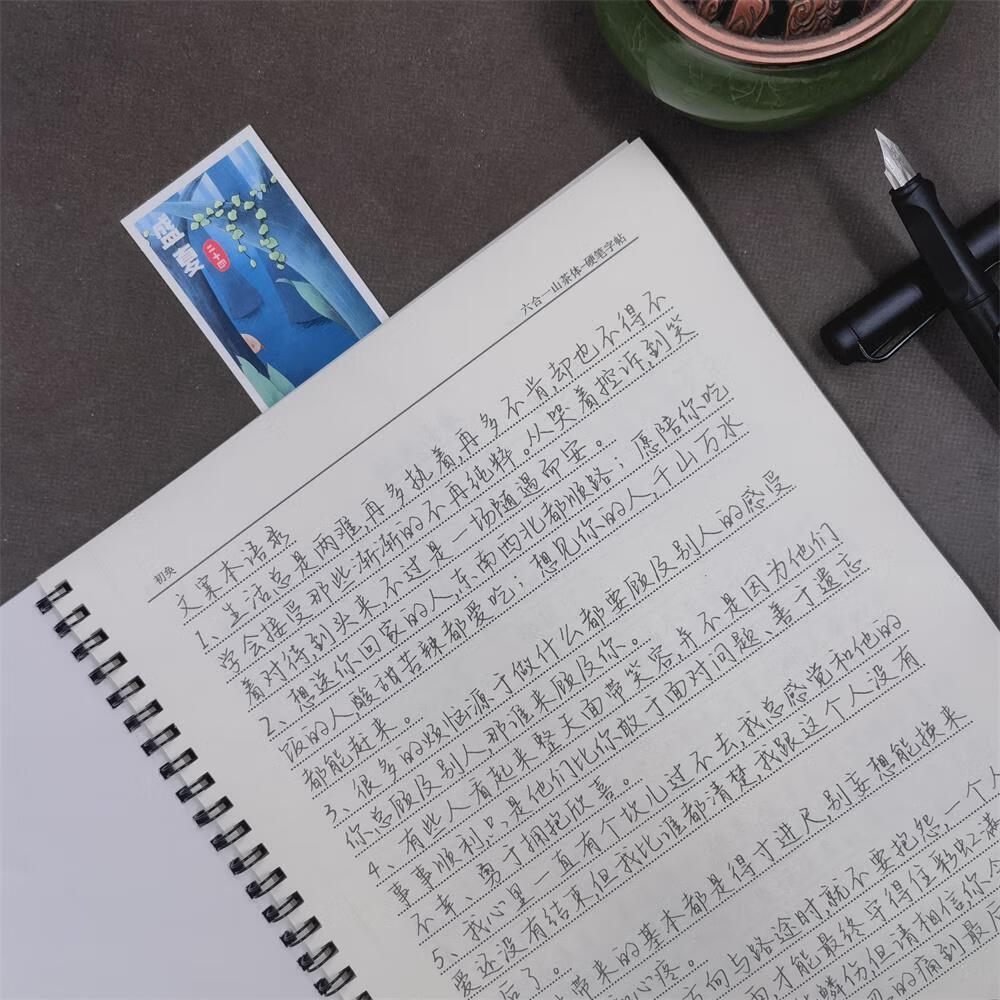 盛夏
二十四
六合一山茶体-硬笔字帖
初央
文案本语录
1、生活总是两难,再多执着,再多不肯,却也不得不
学会接受那些渐渐的不再纯粹。从哭着控诉,到笑
着对待,到头来,不过是一场随遇而安。
2、想送你回家的人,东南西北都顺路;愿陪你吃
饭的人,酸甜苦辣都爱吃;想见你的人,千山万水
都能赶来。
3、很多的烦恼源于做什么都要顾及别人的感受
你总顾及别人,那谁来顾及你。
4、有些人看起来整天面带笑容,并不是因为他们
事事顺利,只是他们比你敢于面对问题、善于遗忘
不幸、勇于拥抱欣喜。
5、我心里一直有个坎儿过不去,我总感觉和他的
爱还没有结束,但我比谁都清楚,我跟这个人没有
后了。
带来的基本都是得寸进尺,别妄想能换来
心疼。
方向与路途时,就不要抱怨,一个人
才能最终守得住彩虹满
鳞伤,但请相信你
的痛到最后